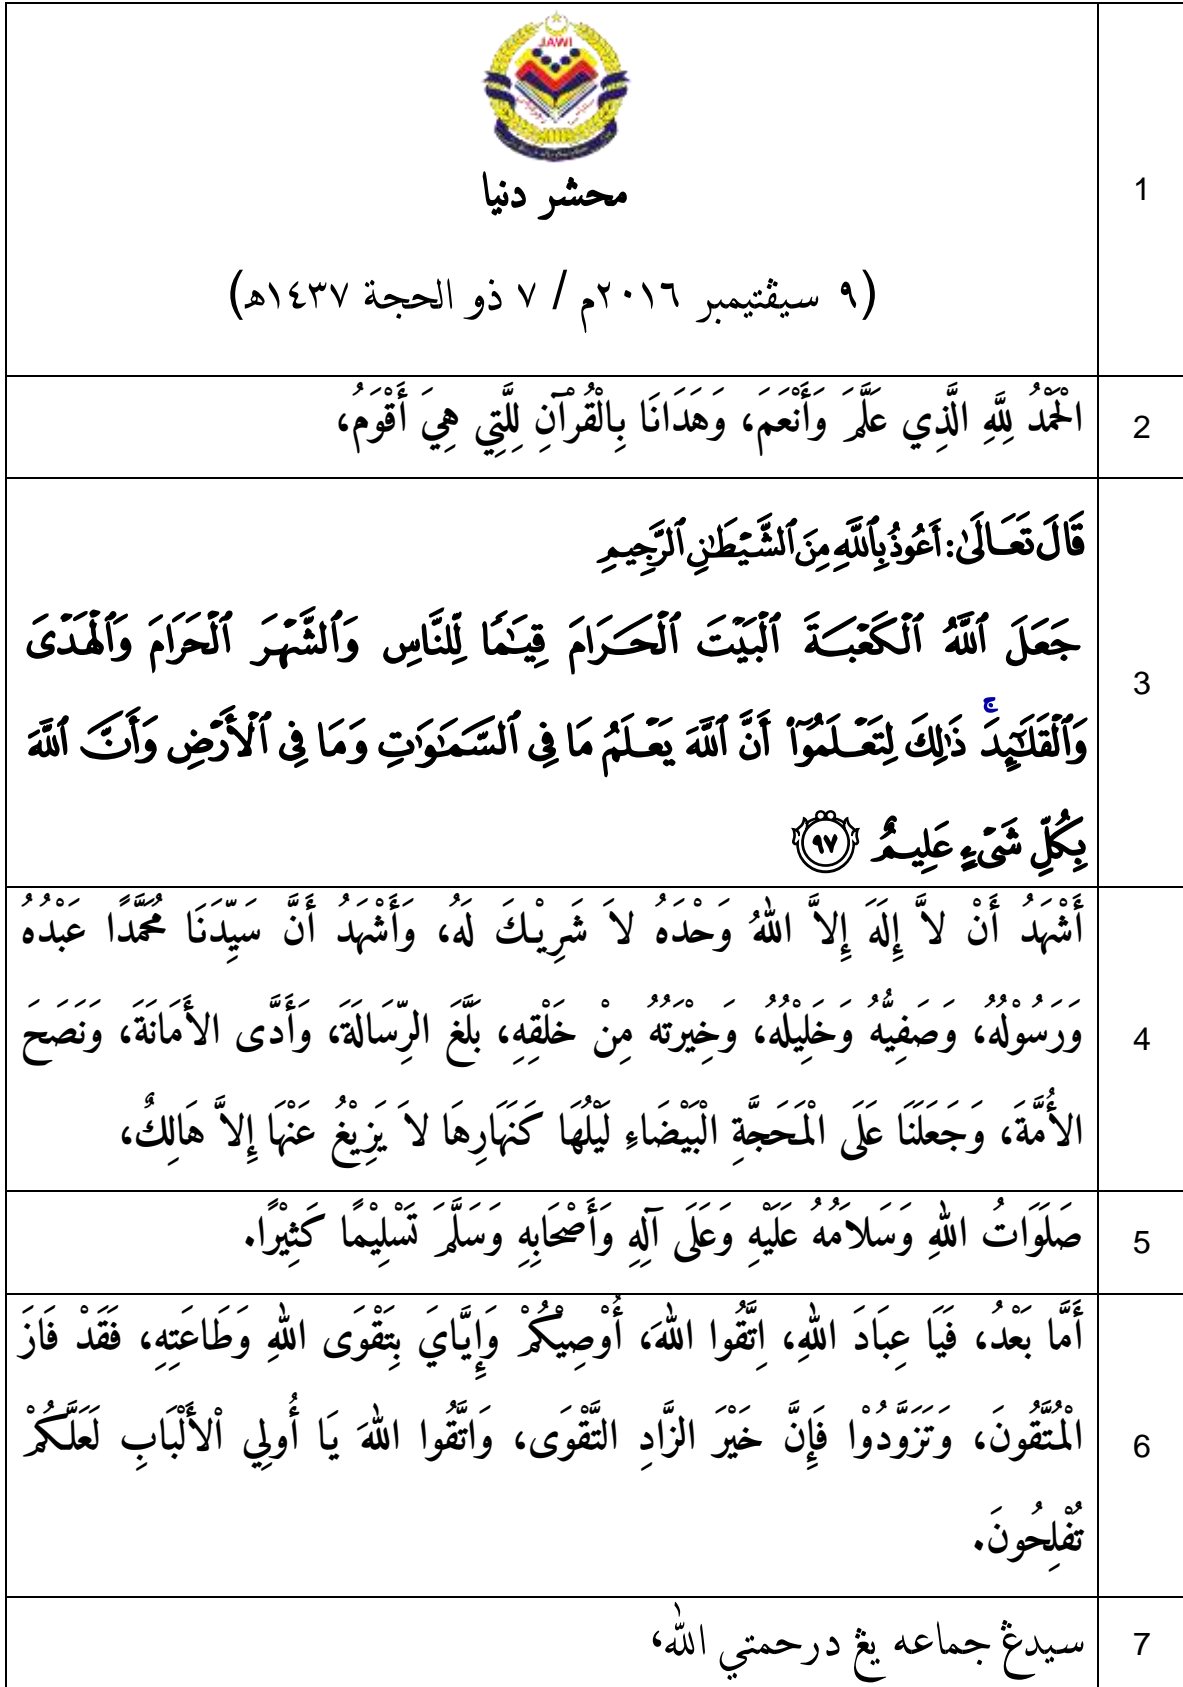 JAWI
محشر دنيا
1
(٩ سيڤتيمبر ٢٠١٦م / ٧ ذو الحجة ١٤٣٧هـ)
الْحَمْدُ لِلَّهِ الَّذِي عَلَّمَ وَأَنْعَمَ، وَهَدَانَا بِالْقُرْآنِ لِلَّتِي هِيَ أَقْوَمُ،
2
قَالَ تَعَالَىٰ: أَعُوذُ بِٱللَّهِ مِنَ ٱلشَّيْطَٰنِ ٱلرَّجِيمِ
جَعَلَ ٱللَّهُ ٱلْكَعْبَةَ ٱلْبَيْتَ ٱلْحَرَامَ قِيَٰمًا لِّلنَّاسِ وَٱلشَّهْرَ ٱلْحَرَامَ وَٱلْهَدْىَ
3
وَٱلْقَلَٰٓئِدَ ۚ ذَٰلِكَ لِتَعْلَمُوٓا۟ أَنَّ ٱللَّهَ يَعْلَمُ مَا فِى ٱلسَّمَٰوَٰتِ وَمَا فِى ٱلْأَرْضِ وَأَنَّ ٱللَّهَ
بِكُلِّ شَىْءٍ عَلِيمٌ ٩٧
أَشْهَدُ أَنْ لاَّ إِلَهَ إِلاَّ اللهُ وَحْدَهُ لاَ شَرِيْكَ لَهُ، وَأَشْهَدُ أَنَّ سَيِّدَنَا مُحَمَّدًا عَبْدُهُ
وَرَسُوْلُهُ، وَصَفِيُّهُ وَخَلِيْلُهُ، وَخِيْرَتُهُ مِنْ خَلْقِهِ، بَلَّغَ الرِّسَالَةَ، وَأَدَّى الأَمَانَةَ، وَنَصَحَ
4
الأُمَّةَ، وَجَعَلَنَا عَلَى الْمَحَجَّةِ الْبَيْضَاءِ لَيْلُهَا كَنَهَارِهَا لاَ يَزِيْغُ عَنْهَا إِلاَّ هَالِكٌ،
صَلَوَاتُ اللهِ وَسَلاَمُهُ عَلَيْهِ وَعَلَى آلِهِ وَأَصْحَابِهِ وَسَلَّمَ تَسْلِيْمًا كَثِيْرًا.
5
أَمَّا بَعْدُ، فَيَا عِبَادَ اللهِ، اِتَّقُوا اللهَ، أُوْصِيْكُمْ وَإِيَّايَ بِتَقْوَى اللهِ وَطَاعَتِهِ، فَقَدْ فَازَ
الْمُتَّقُونَ، وَتَزَوَّدُوْا فَإِنَّ خَيْرَ الزَّادِ التَّقْوَى، وَاتَّقُوا اللهَ يَا أُولِي اْلأَلْبَابِ لَعَلَّكُمْ
6
تُفْلِحُونَ.
سيدڠ جماعه يڠ درحمتي الله،
7